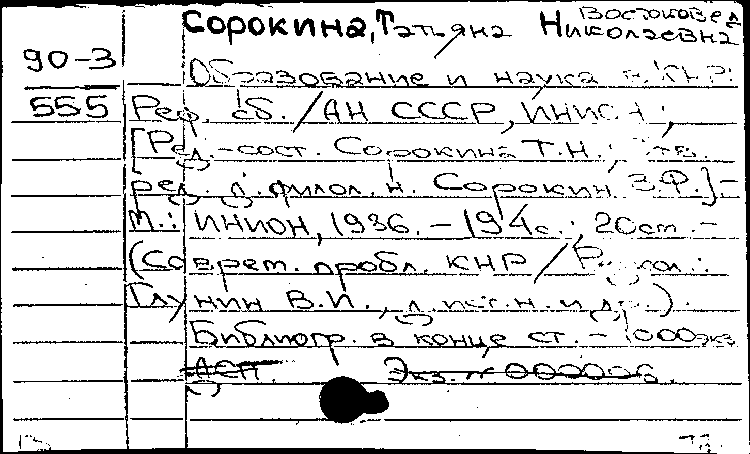 Востоковед
Сорокина, Татьяна Николаевна
90-3
Образование и наука в КНР:
555 Реф. сб. / АН СССР, ИНИОН;
[Ред.-сост. Сорокина Т.Н.; отв.
ред. д. филол. н. Сорокин В.Ф.] -
М.: ИНИОН, 1986. - 194 с.; 20 см. -
(Соврем. пробл. КНР / Редкол.:
Глунин В.И., д. ист. н. и др.).
Библиогр. в конце ст. - 1000 экз.
ДСП. Экз. № 000006.